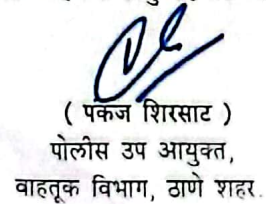 ( पंकज शिरसाट )
पोलीस उप आयुक्त,
वाहतूक विभाग, ठाणे शहर.